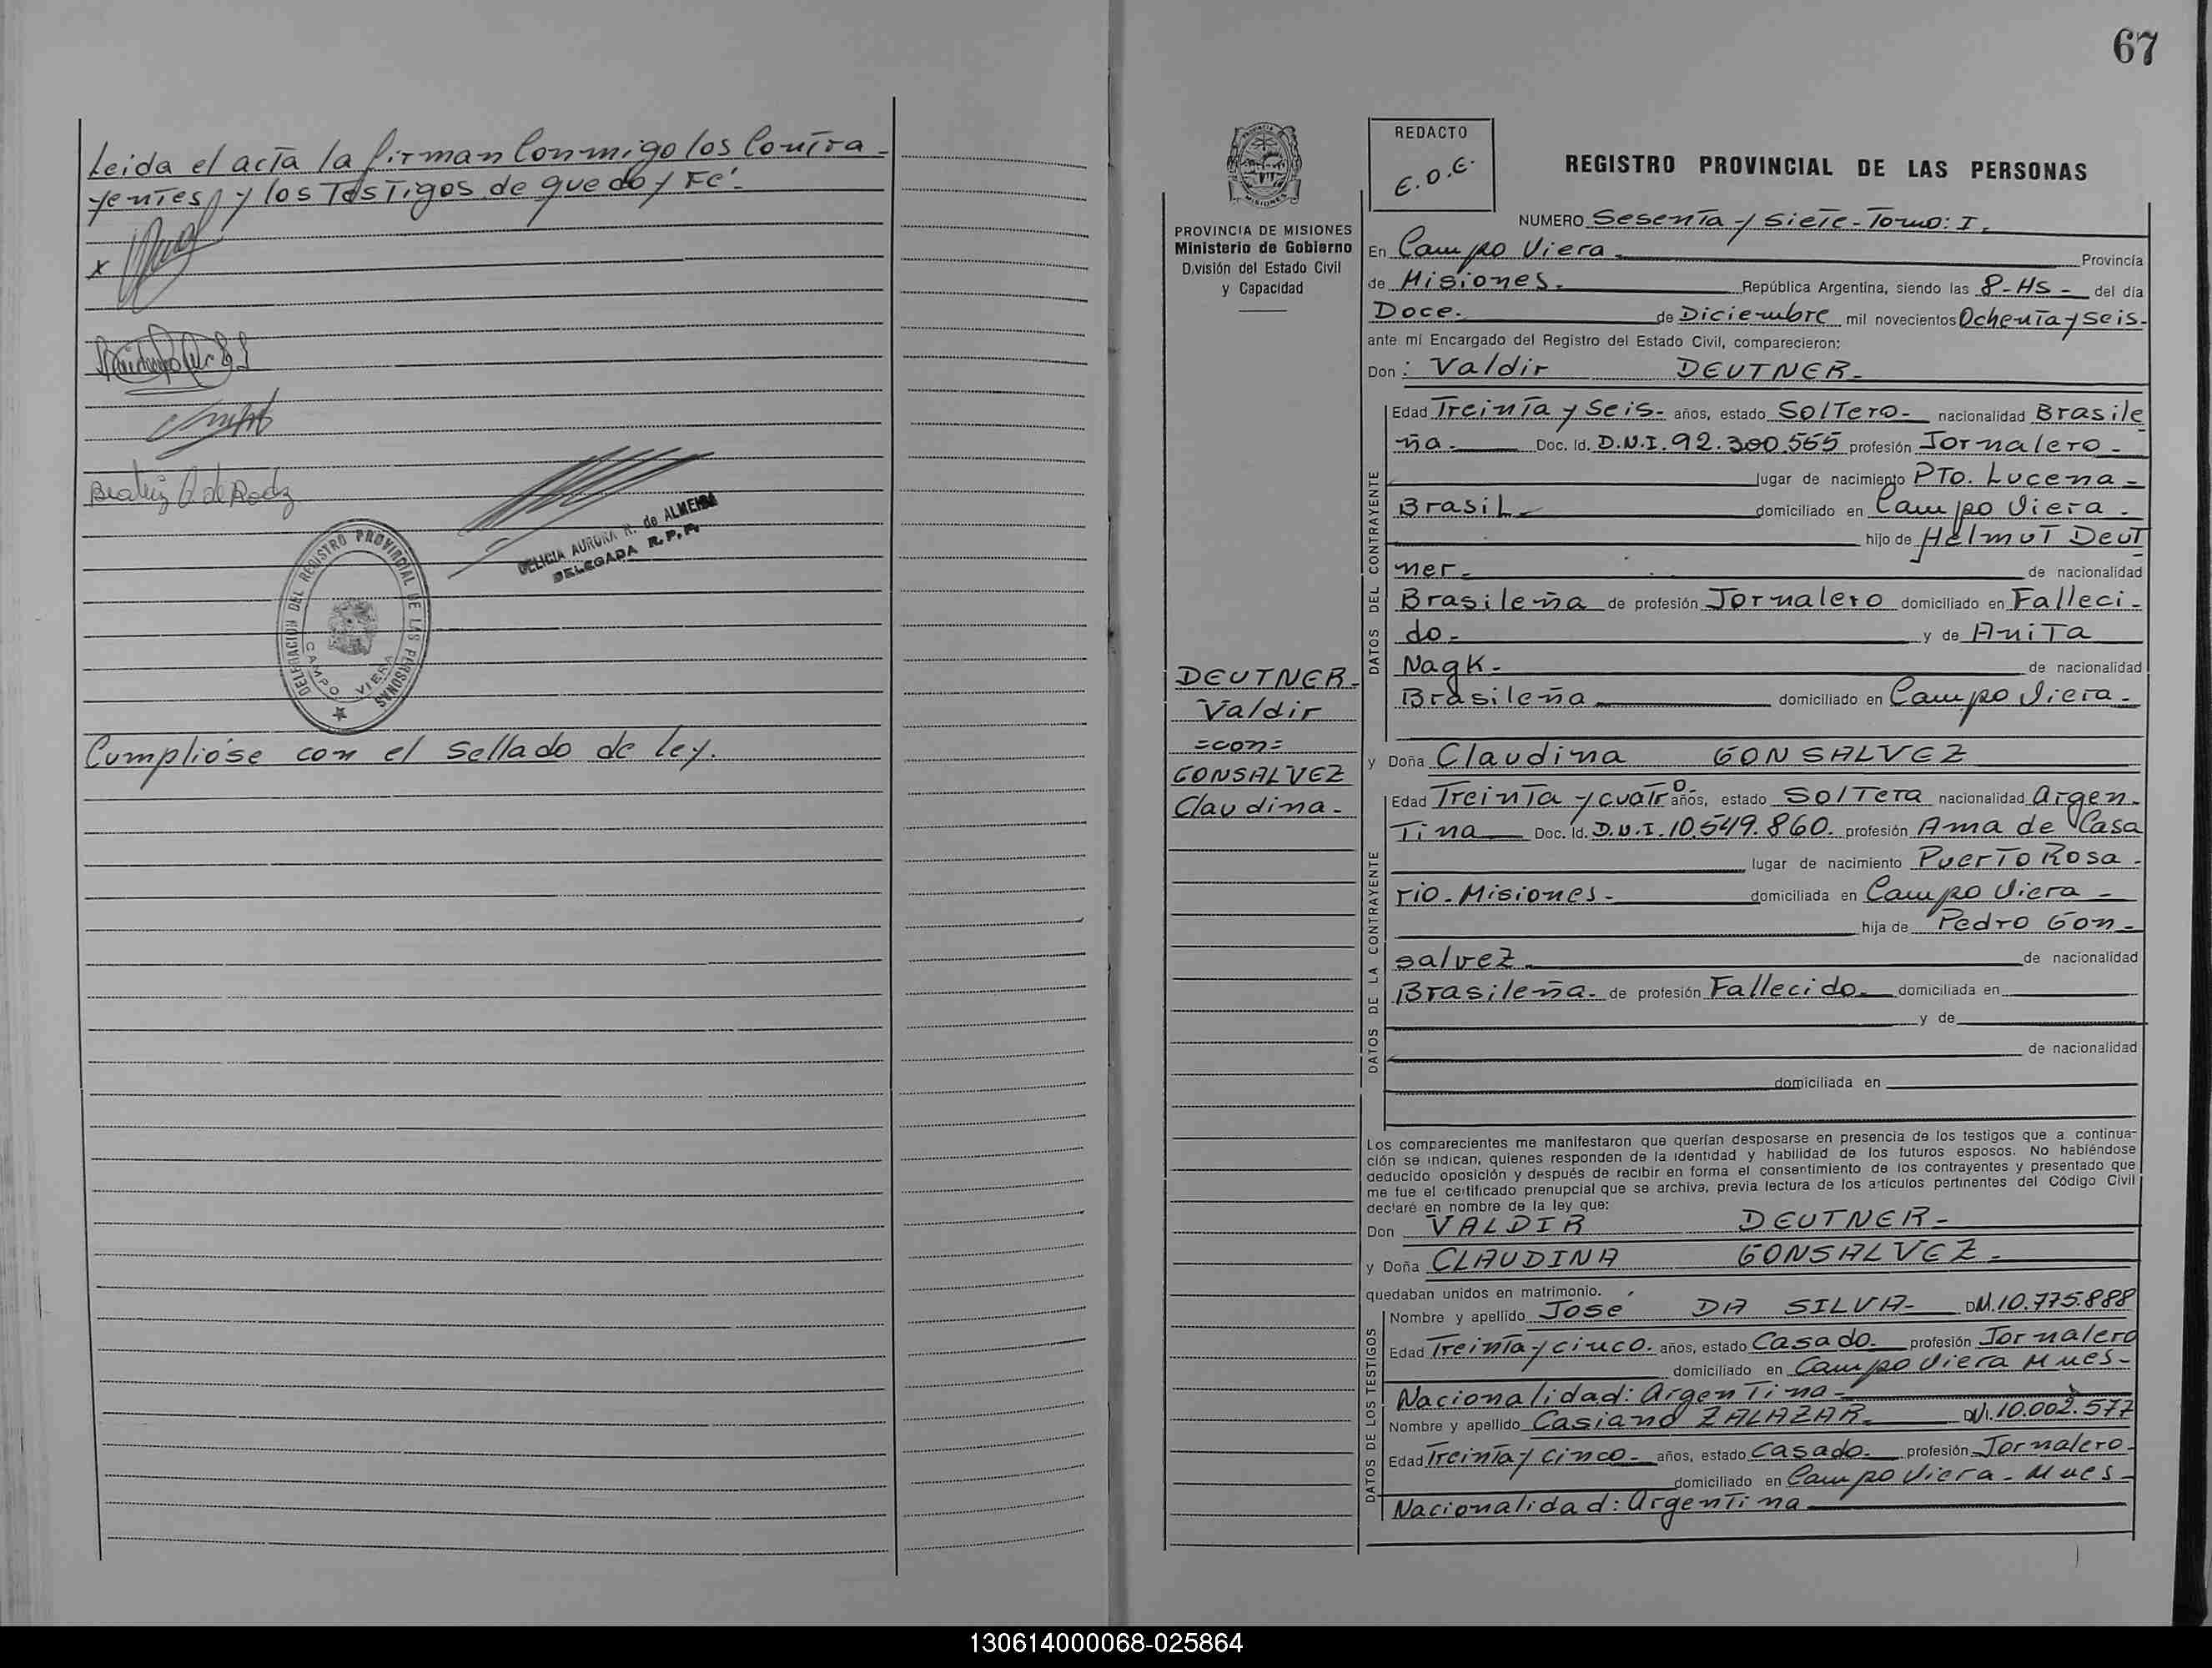 Leida el acta la firman Conmigo los Contra-
yentes y los Testigos de que doy Fé.
x
Beatriz R de Rodz
DELICIA AURORA R. de ALMEIDA
DELEGADA R.P.P.
DELEGACION DEL REGISTRO PROVINCIAL DE LAS PERSONAS
CAMPO VIERA
Cumplióse con el sellado de ley.
67
PROVINCIA DE MISIONES
Ministerio de Gobierno
División del Estado Civil
y Capacidad
DEUTNER-
Valdir
=con=
GONSALVEZ
Claudina-
REDACTO
E.O.E.
REGISTRO PROVINCIAL DE LAS PERSONAS
NUMERO Sesenta y Siete-Tomo: I.
En Campo Viera Provincia
de Misiones. República Argentina, siendo las 8-Hs- del día
Doce. de Diciembre mil novecientos Ochenta y Seis-
ante mí Encargado del Registro del Estado Civil, comparecieron:
Don: Valdir DEUTNER-
DATOS DEL CONTRAYENTE
Edad Treinta y Seis- años, estado Soltero- nacionalidad Brasile
ña. Doc. Id. D.N.I. 92.300.555 profesión Jornalero-
lugar de nacimiento PTO. Lucena-
Brasil- domiciliado en Campo Viera.
hijo de Helmut Deut
ner- de nacionalidad
Brasileña de profesión Jornalero domiciliado en Falleci-
do- y de Anita
Nagk- de nacionalidad
Brasileña domiciliado en Campo Viera-
y Doña Claudina GONSALVEZ
DATOS DE LA CONTRAYENTE
Edad Treinta y cuatro años, estado Soltera nacionalidad Argen-
tina Doc. Id. D.N.I. 10.549.860. profesión Ama de Casa
lugar de nacimiento Puerto Rosa-
rio-Misiones- domiciliada en Campo Viera-
hija de Pedro Gon-
salvez- de nacionalidad
Brasileña- de profesión Fallecido- domiciliada en
y de
de nacionalidad
domiciliada en
Los comparecientes me manifestaron que querían desposarse en presencia de los testigos que a continua-
ción se indican, quienes responden de la identidad y habilidad de los futuros esposos. No habiéndose
deducido oposición y después de recibir en forma el consentimiento de los contrayentes y presentado que
me fue el certificado prenupcial que se archiva, previa lectura de los artículos pertinentes del Código Civil
declaré en nombre de la ley que:
Don VALDIR DEUTNER-
y Doña CLAUDINA GONSALVEZ-
quedaban unidos en matrimonio.
DATOS DE LOS TESTIGOS
Nombre y apellido José DA SILVA- DM.10.775.888
Edad Treinta y cinco. años, estado Casado- profesión Jornalero
domiciliado en Campo Viera Mnes-
Nacionalidad: Argentina-
Nombre y apellido Casiano ZALAZAR- DNI.10.002.577
Edad Treinta y Cinco- años, estado Casado- profesión Jornalero-
domiciliado en Campo Viera-Mnes-
Nacionalidad: Argentina
130614000068-025864